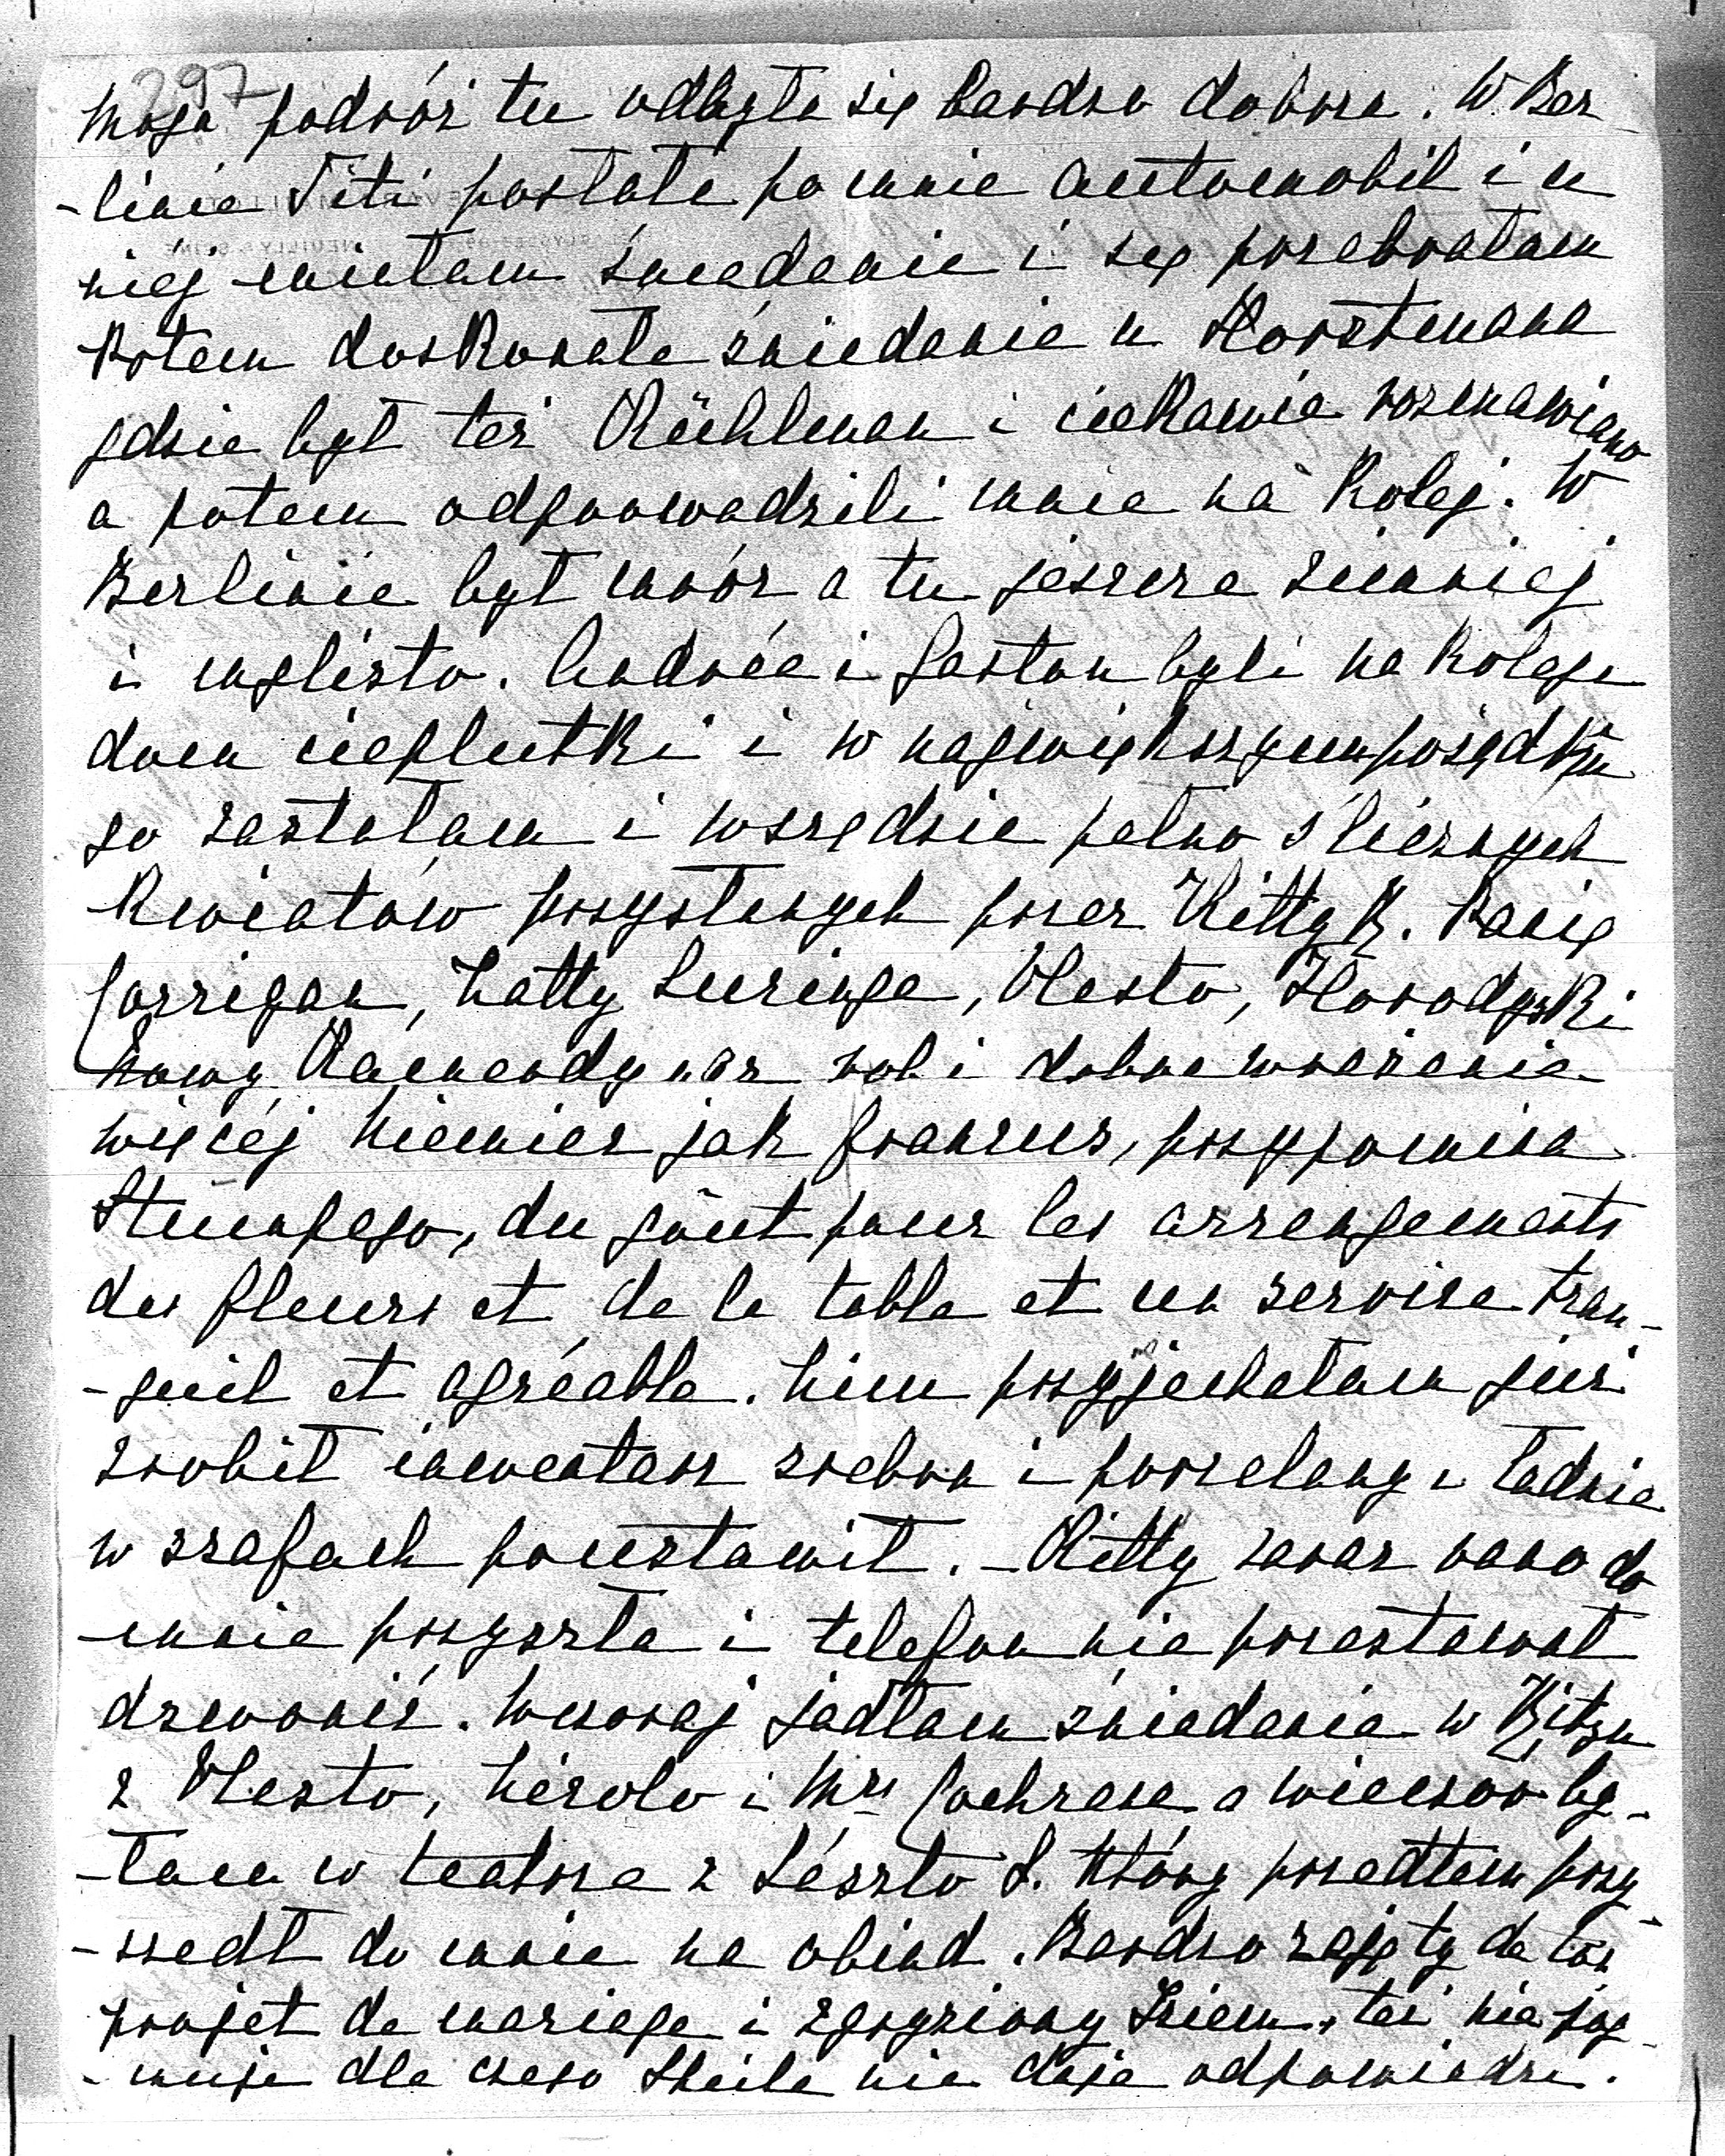 297
Moja podróż tu odbyła się bardzo dobrze. W Ber-
-linie Titi posłała po mnie automobil i u
niej miałam śniadanie i się przebrałam
Potem doskonałe śniadanie u Horstmana
gdzie był też Kühlman i ciekawie rozmawiano
a potem odprowadzili mnie na kolej. W
Berlinie był mróz a tu jeszcze zimniej
i mglisto. Andrée i Gaston byli na kolei
dom cieplutki i w największym porządku
go zastałam i wszędzie pełno ślicznych
kwiatów przysłanych przez Kitty R. Panią
Corrigan, Hatty Luzinge, Olesto, Horodyski
Nowy Kamerdyner robi dobre wrażenie
więcej Niemiec jak francuz, przypomina
Stumpego, du goût pour les arrengements
des fleurs et de la table et un service tran-
-quil et agréable. Nim przyjechałam już
zrobił inwentarz srebra i porcelany i ładnie
w szafach poustawił. - Kitty zaraz rano do
mnie przyszła i telefon nie przestawał
dzwonić. Wczoraj jadłam śniadanie w Ritzu
z Olesto, Nérolo i Mrs Cochrane a wieczór by-
-łam w teatrze z László S. który przedtem przy-
-szedł do mnie na obiad. Bardzo zajęty de ton
projet de mariage i zgryziony Isiem, też nie poj-
-muje dla czego Sheila nie daje odpowiedzi.